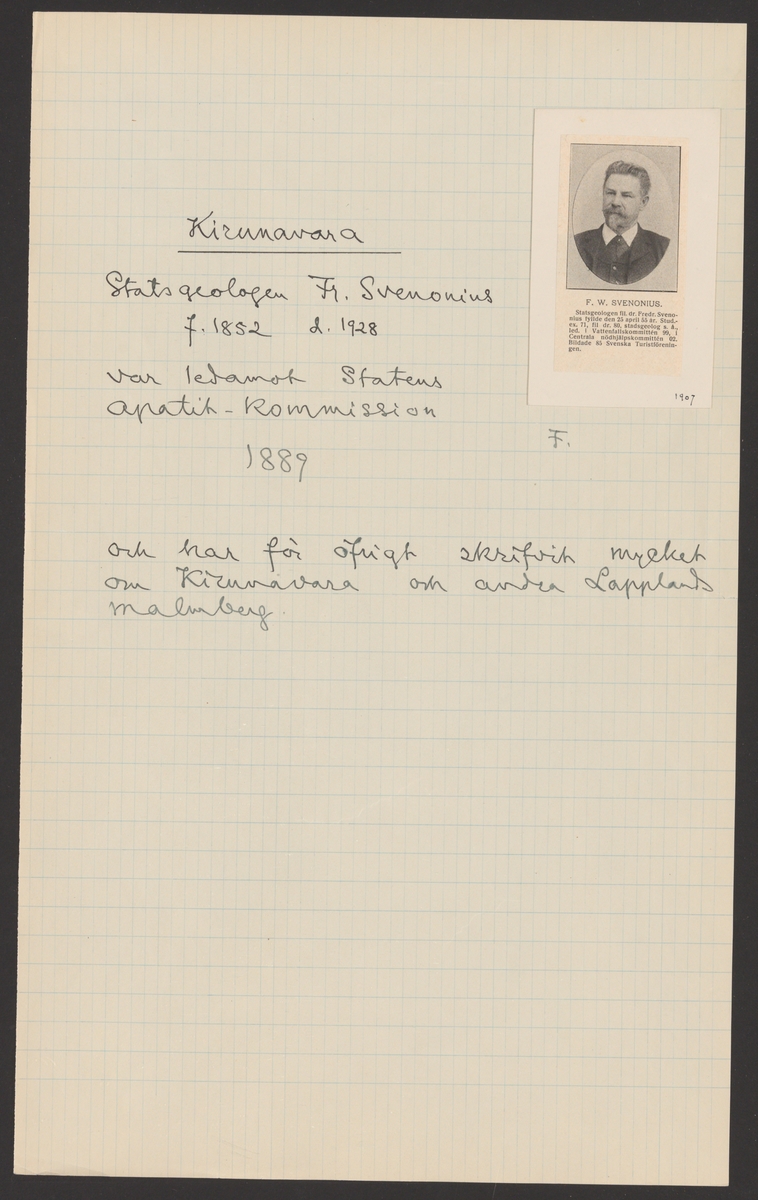 Kirunavara
Statsgeologen Fr. Svenonius
f. 1852 d. 1928
var ledamot Statens
apatit-kommission
1889
och har för öfrigt skrifvit mycket
om Kirunavara och andra Lapplands
malmberg.
F. W. SVENONIUS.
Statsgeologen fil. dr. Fredr. Sveno-
nius fyllde den 25 april 55 år. Stud.-
ex. 71, fil dr. 80, stadsgeolog s. å.,
led. i Vattenfallskommittén 99, i
Centrala nödhjälpskommittén 02.
Bildade 85 Svenska Turistförenin-
gen.
1907
F.